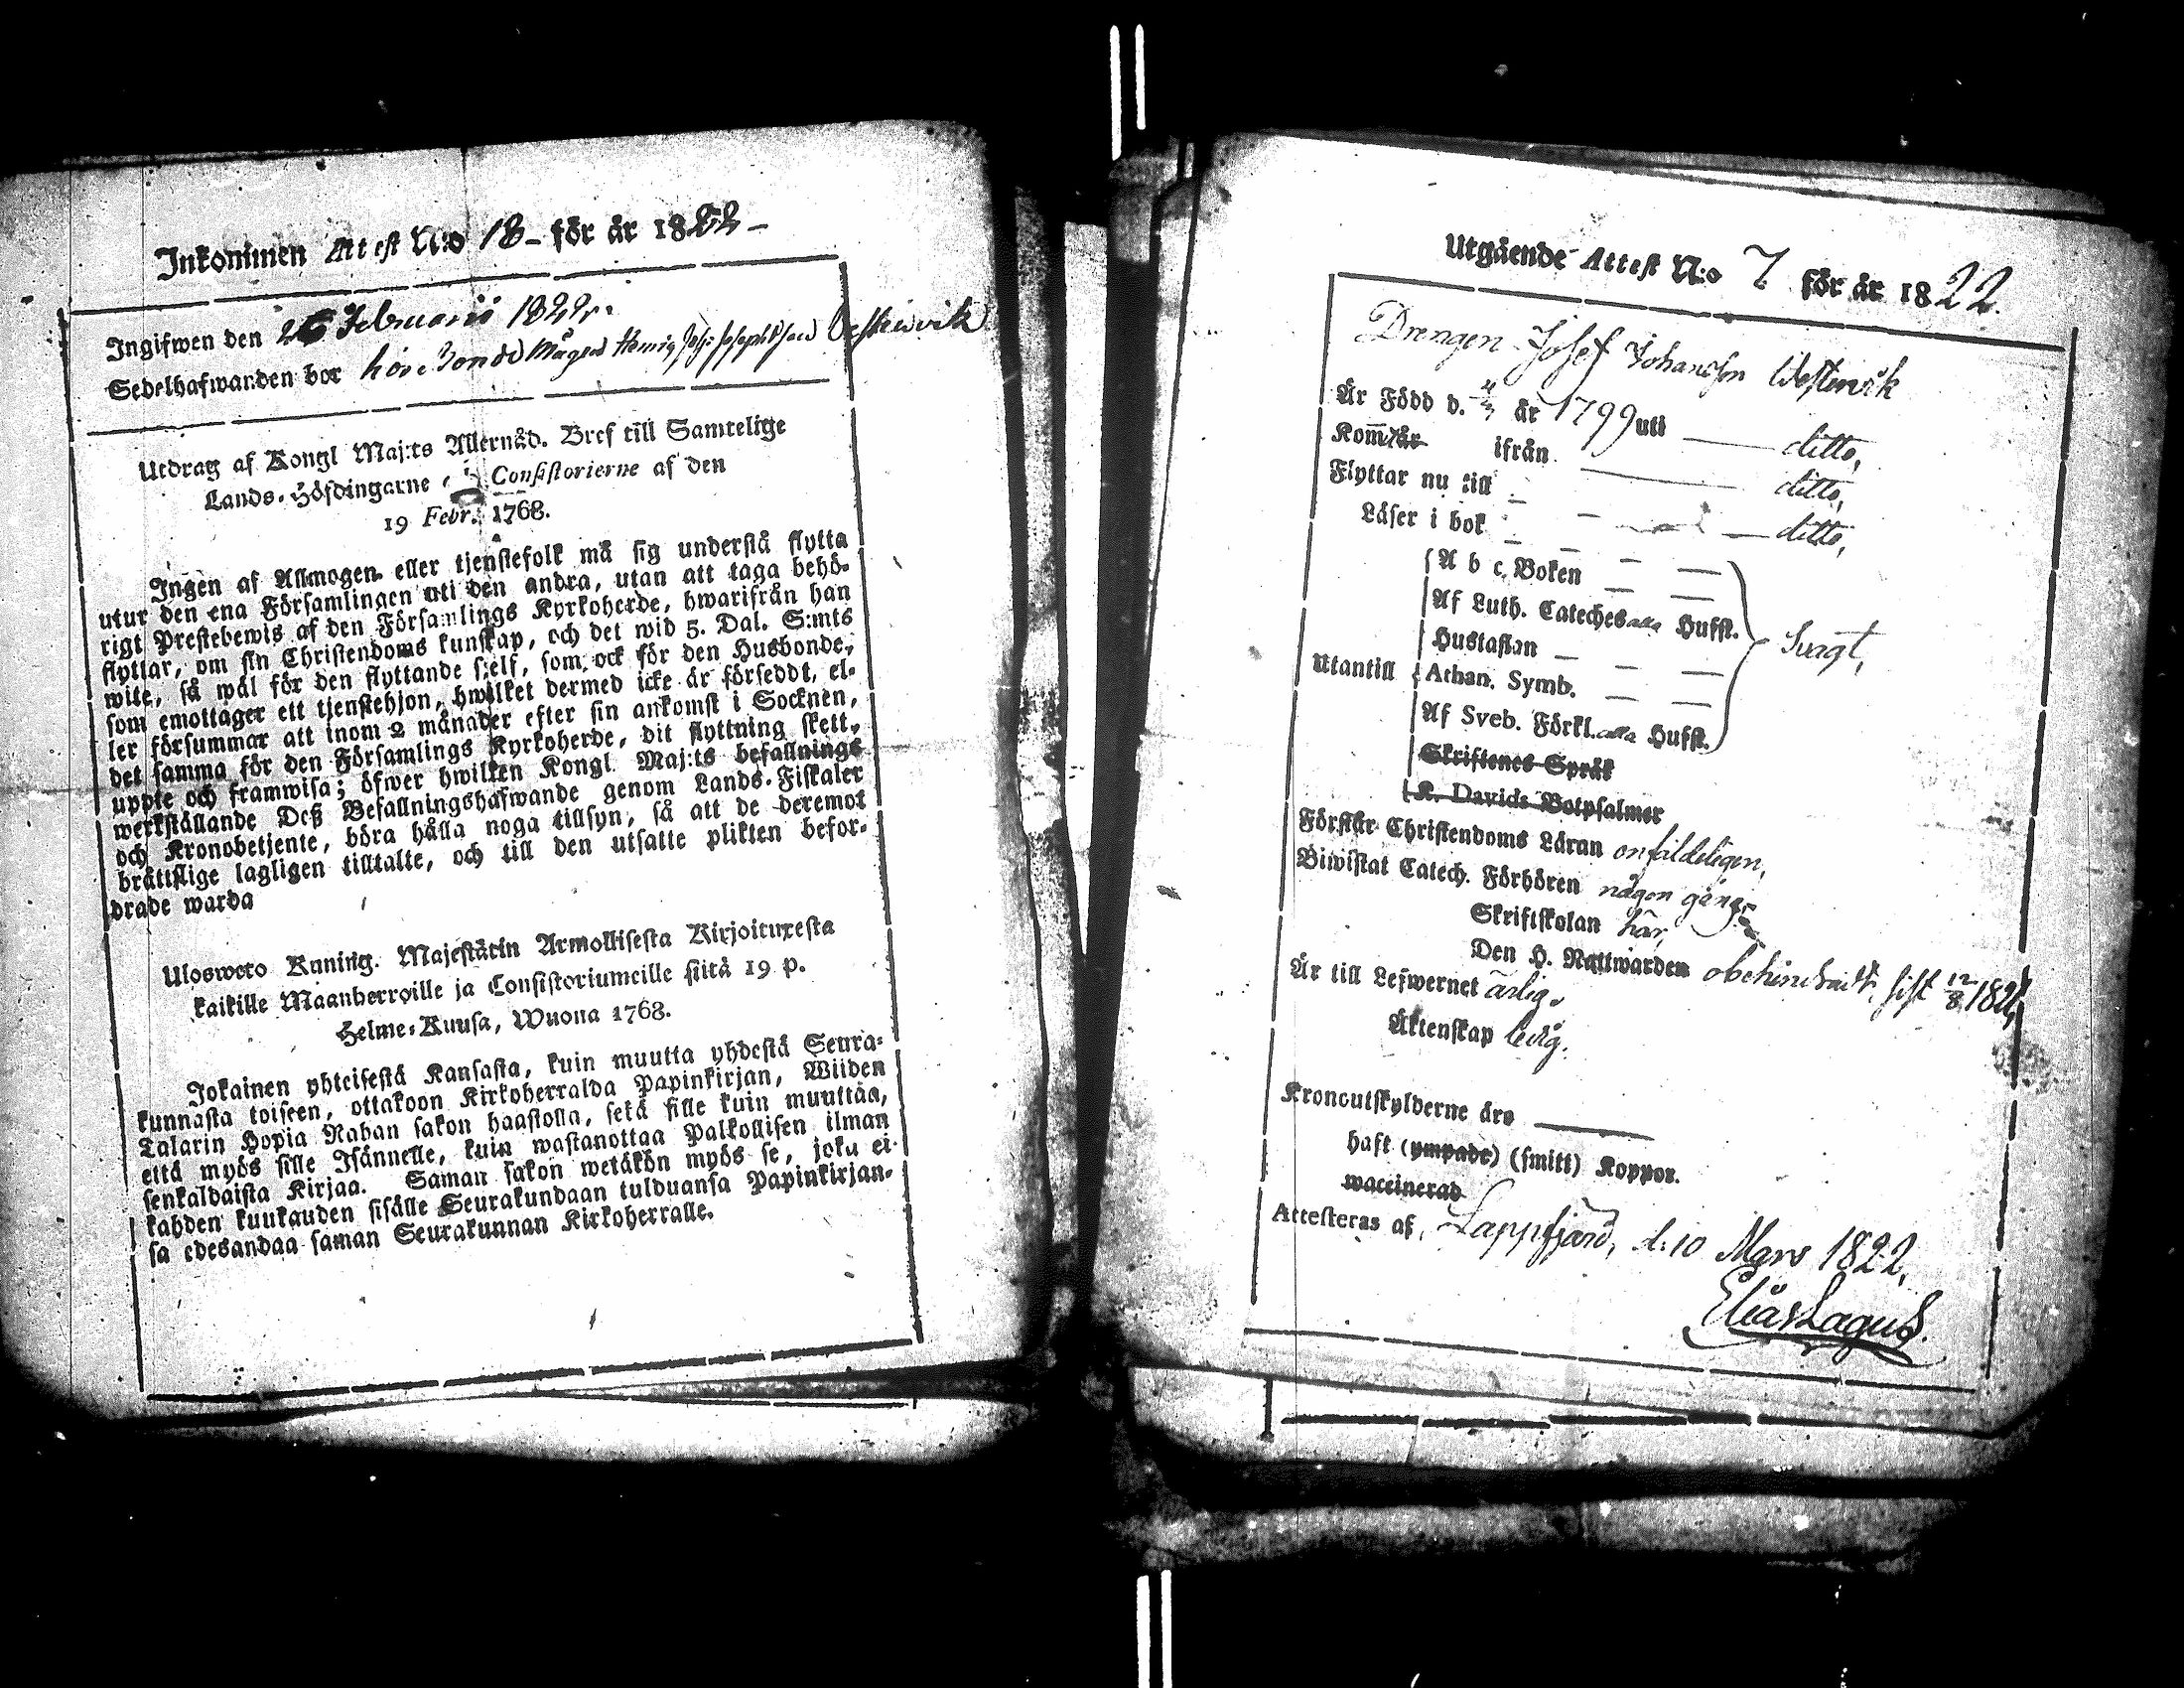 Inkommen Attest N:o 18 - för år 1822 -
Ingifwen den 26 Februarii 1822.
Sedelhafwanden bor hos Bonde Mågen Henrik Josephsson
Utdrag af Kongl Maj:ts Allernåd. Bref till Samtelige
Lands-Höfdingarne Consistorierne af den
19 Febr. 1768.
Ingen af Allmogen eller tjenstefolk må sig understå flytta
utur den ena Församlingen uti den andra, utan att taga behö-
rigt Prestebewis af den Församlings Kyrkoherde, hwarifrån han
flyttar, om sin Christendoms kunskap, och det wid 5. Dal. S:mts
wite, så wäl för den flyttande sjelf, som ock för den Husbonde,
som emottager ett tjenstehjon, hwilket dermed icke är försedt, el-
ler försummar att inom 2 månader efter sin ankomst i Socknen,
det samma för den Församlings Kyrkoherde, dit flyttning skett,
uppte och framwisa; öfwer hwilken Kongl. Maj:ts befallnings
werkställande Deß Befallningshafwande genom Lands-Fiskaler
och Kronobetjente, böra hålla noga tillsyn, så att de deremot
bråttslige lagligen tilltalte, och till den utsatte plikten befor-
drade warda
Ulosweto Kuning. Majestätin Armollisesta Kirjoituxesta
kaikille Maanherroille ja Consistoriumeille siitä 19 p.
Helme-Kuusa, Wuona 1768.
Jokainen yhteisestä Kansasta, kuin muutta yhdestä Seura-
kunnasta toiseen, ottakoon Kirkoherralda Papinkirjan, Wiiden
Talarin Hopia Rahan sakon haastolla, sekä sille kuin muuttaa,
että myös sille Isännelle, kuin wastanottaa Palkollisen ilman
senkaldaista Kirjaa. Saman sakon wetäkön myös se, joka ei
kahden kuukauden sisälle Seurakundaan tulduansa Papinkirjan-
sa edesandaa saman Seurakunnan Kirkoherralle.
Utgående Attest N:o 7 för år 1822.
Drengen Josef Johansson Westervik
Är Född d. år 1799 uti — ditto,
Kommit ifrån — ditto,
Flyttar nu till — ditto,
Läser i bok
A b c Boken
Af Luth. Cateches alla Hufst.
Hustaflan
Utantill Athan. Symb. Svagt,
Af Sveb. Förkl. alla Hufst.
Skriftenes Språk
K. Davids Botpsalmer
Förstår Christendoms Läran enfaldeligen,
Biwistat Catech. Förhören någon gång
Skriftskolan här,
Den H. Nattwarden obehindradt, sist 12/8
Är till Lefwernet ärlig.
Äktenskap ledig.
Kronoutskylderne äro —
haft (ympade) (smitt) Koppor.
waccinerad
Attesteras af, Lappfjärd, d: 10 Mars 1822.
Elias Lagus.